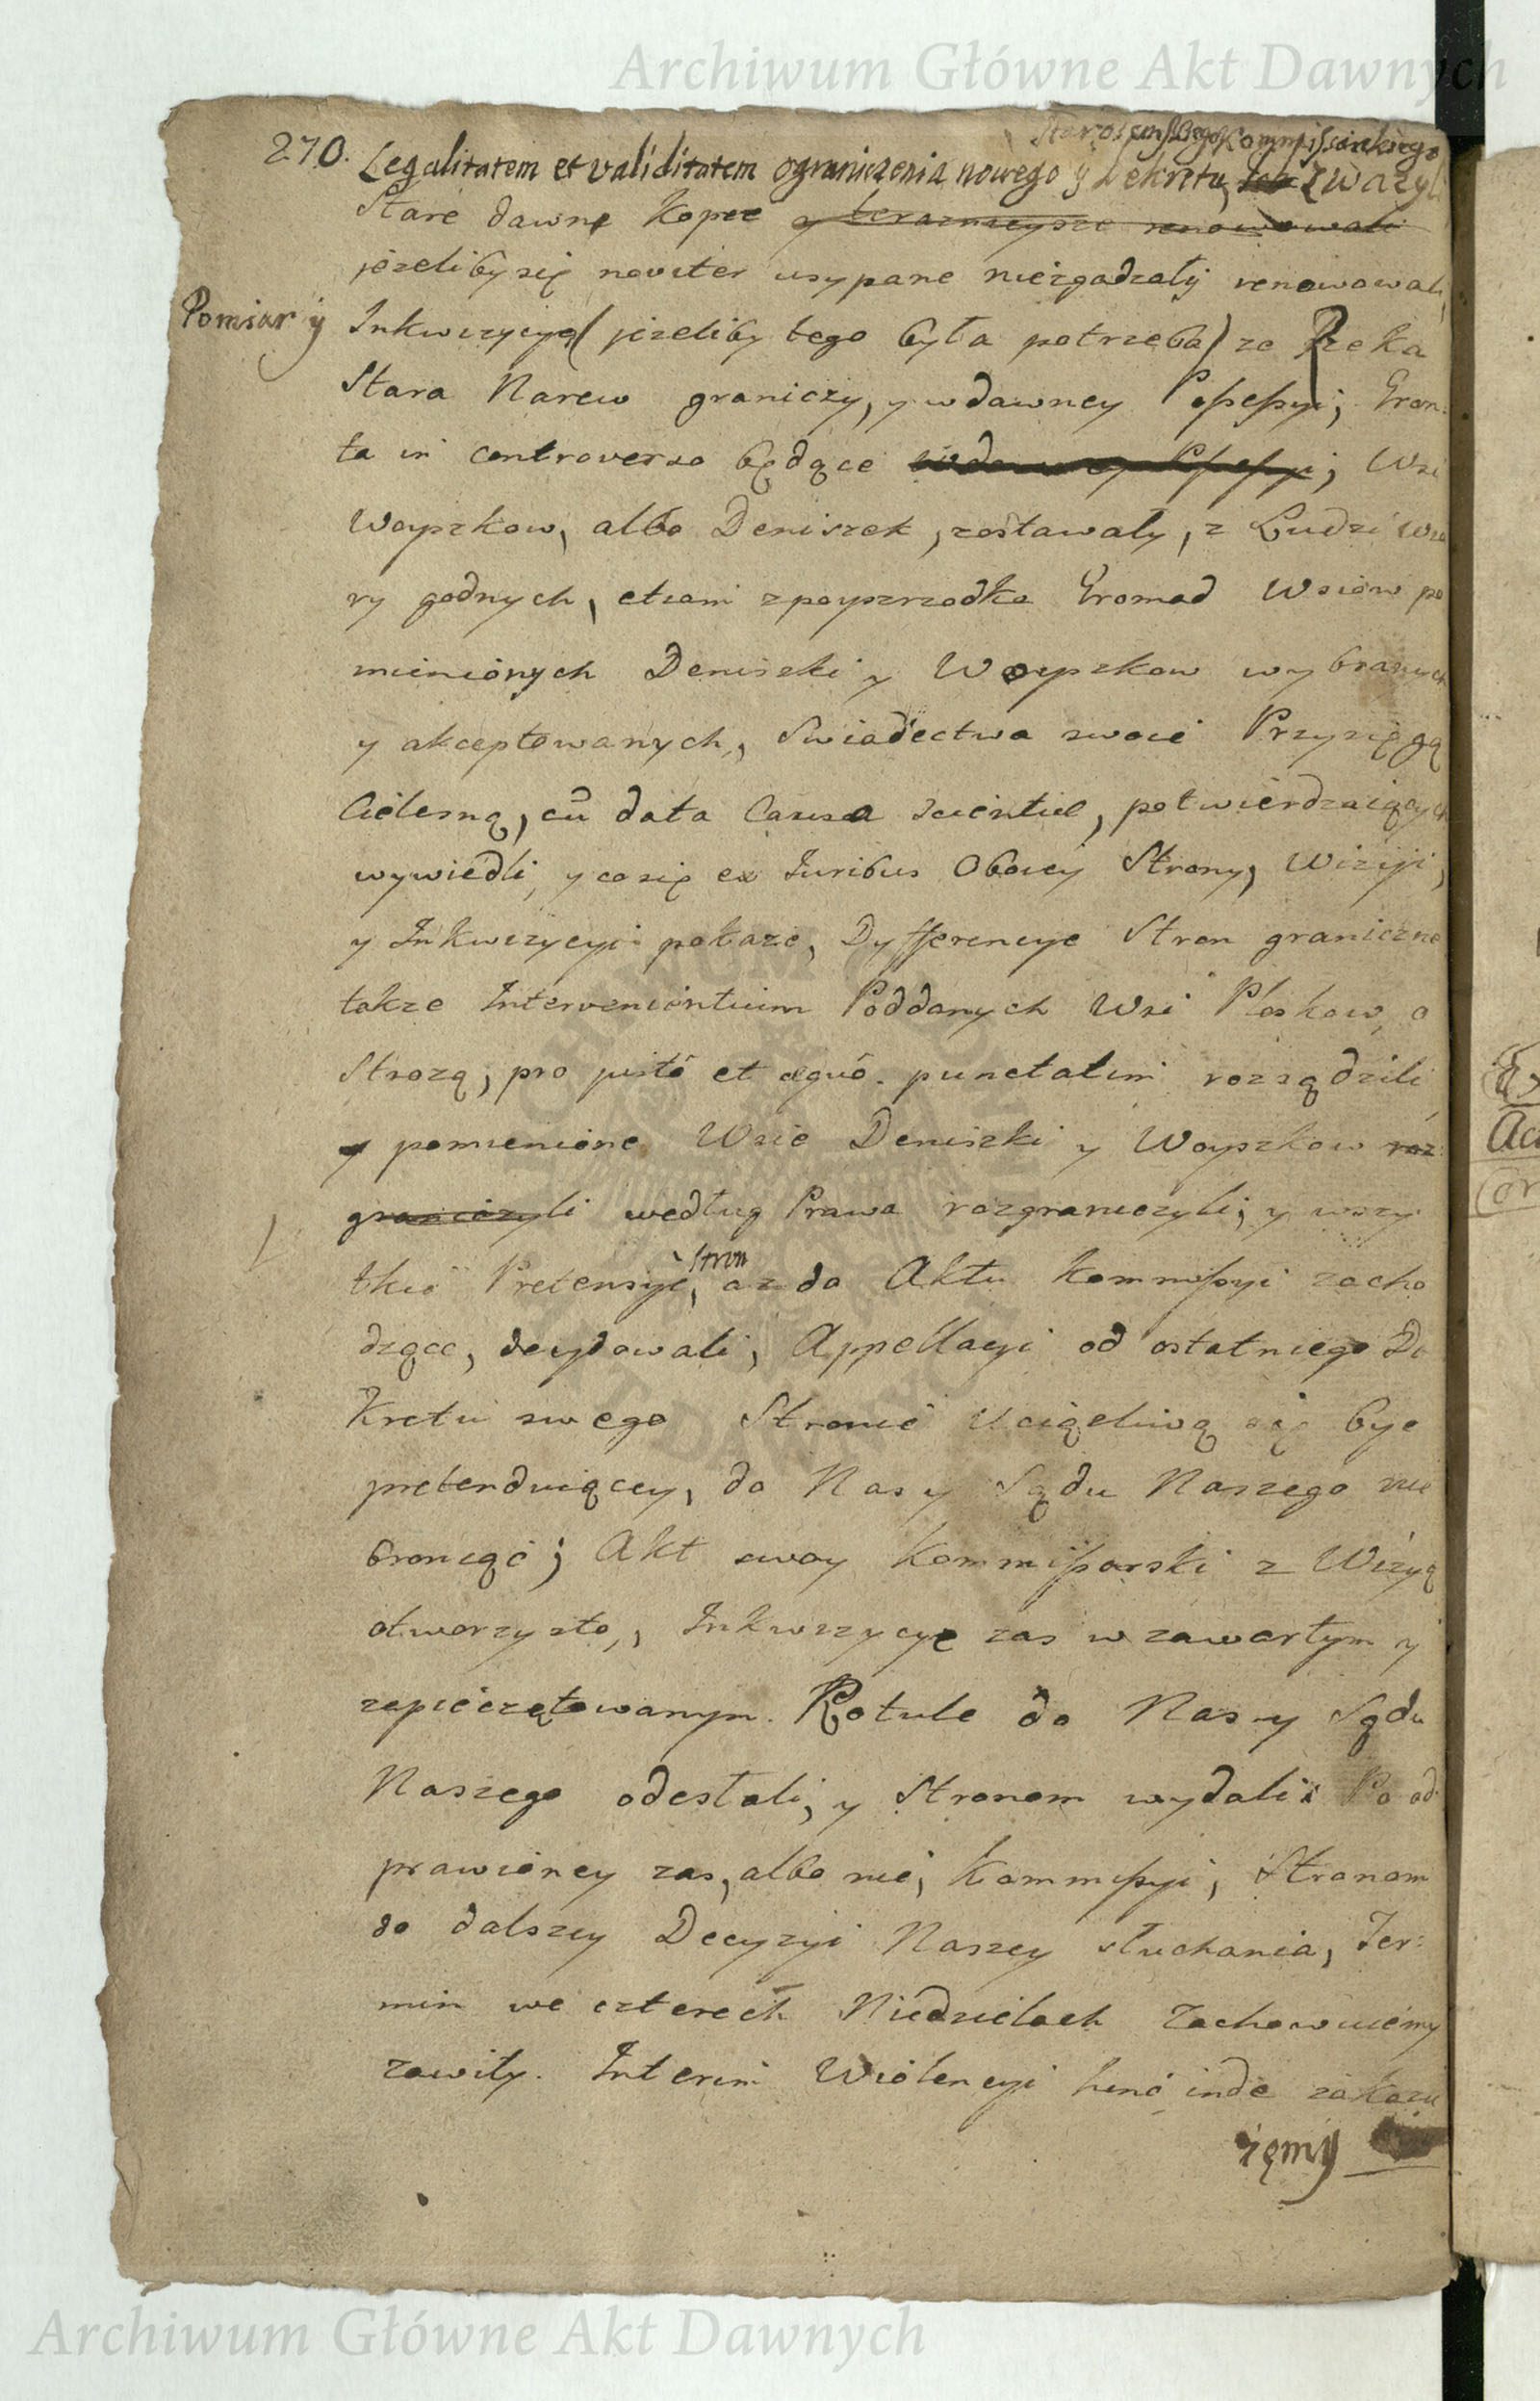 Archiwum Główne Akt Dawnych
Kommissarskiego
270. Legalitatem et validitatem ograniczenia nowego y Dekretu, zwazyli
Stare dawne Kopce y teraznieysze renowowali
jezeliby się noviter usypane niezgadzały renowowali,
Pomiar y Inkwizycyą (jezeliby tego była potrzeba) ze Rzeka
Stara Narew graniczy, y w dawney Possessyi, Gron:
ta in controverso będące w dawney Possessyi, Wsi
Woyszkow, albo Deniszek, zostawały, z Ludzi Wia
ry godnych, etiam zpoyszrzodka Gromad Wsiow po
mienionych Deniszki y Woyszkow wybranych
y akceptowanych, Swiadectwa swoie Przysięgą
Cielesną, cũ data Causa scientiæ, potwierdzaiących
wywiedli, y co się ex Iuribus Obojey Strony, Wizyi,
y Inkwizycyi pokaze, Dyfferencye Stron graniczne
takze Intervenientium Poddanych Wsi Ploskow, o
Strozą, pro justo et æquo punctatim rozsądzili
y pomienione Wsie Deniszki y Woyszkow roz
graniczyli według Prawa rozgraniczyli, y wszy
tkie Pretensye, Stron az do Aktu Kommissyi zacho
dzące, decydowali, Appellacyi od ostatniego De
kretu swego Stronie Uciązliwą się byc
pretenduiącey, do Nas y Sądu Naszego nie
broniąc; Akt swoy Kommissarski z Wizyą
otworzysto, Inkwizycye zas w zawartym y
zapieczętowanym Rotule do Nas y Sądu
Naszego odesłali, y Stronom wydali: Po od
prawioney zas, albo nie, Kommissyi, Stronom
do dalszey Decyzyi Naszey słuchania, Ter:
min we czterech Niedzielach Zachowuiemy
zawity. Interim Wiolencyi hinc inde zakazu
iemy
Archiwum Główne Akt Dawnych